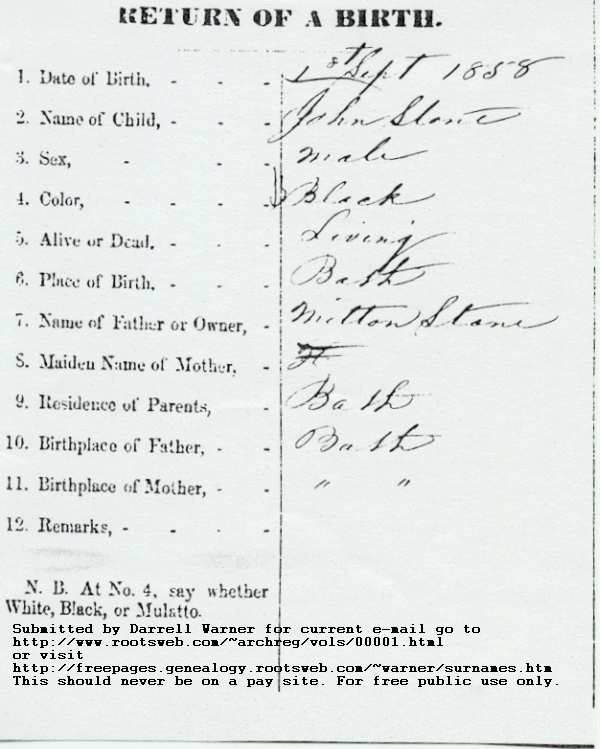 RETURN OF A BIRTH.
1. Date of Birth, - - - 1st Sept 1858
2. Name of Child, - - - John Stone
3. Sex, - - - Male
4. Color, - - - - Black
5. Alive or Dead, - - - Living
6. Place of Birth, - - - Bath
7. Name of Father or Owner, - Milton Stone
8. Maiden Name of Mother, -
9. Residence of Parents, - Bath
10. Birthplace of Father, - - Bath
11. Birthplace of Mother, - - " "
12. Remarks, - - - -
N. B. At No. 4, say whether
White, Black, or Mulatto.
Submitted by Darrell Warner for current e-mail go to
http://www.rootsweb.com/~archreg/vols/00001.html
or visit
http://freepages.genealogy.rootsweb.com/~warner/surnames.htm
This should never be on a pay site. For free public use only.